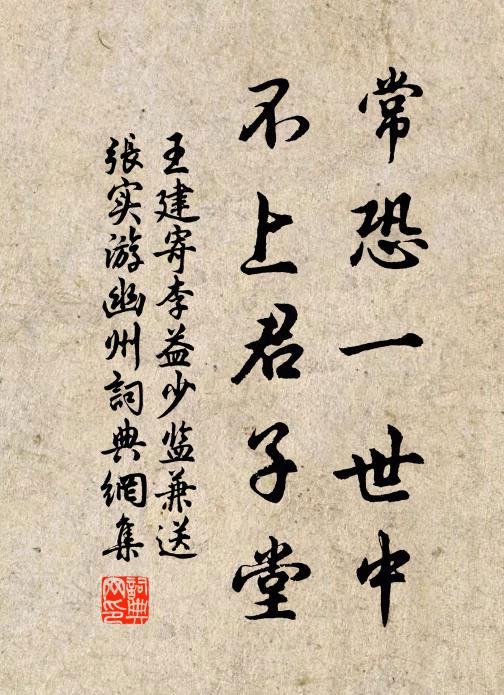 常恐一世中
不上君子堂
王建寄李益少监兼送
張实游幽州詞典網集
詞典網印